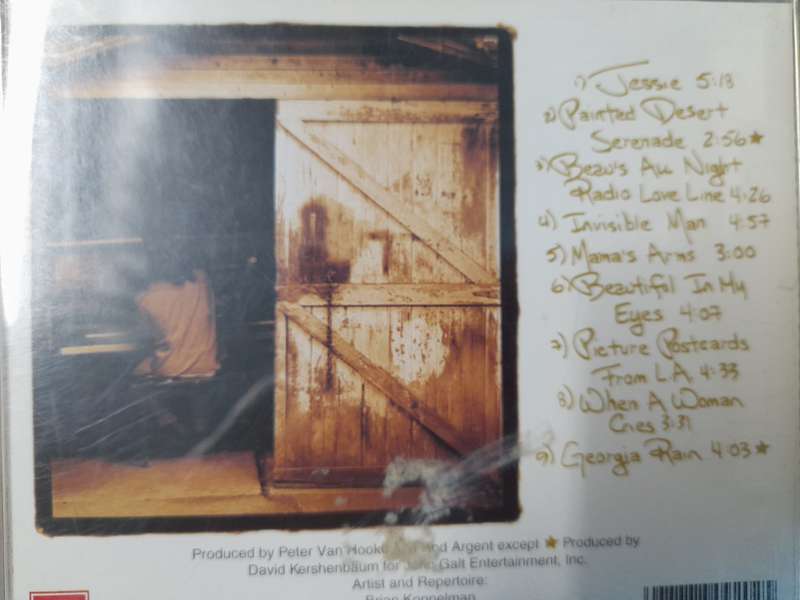 1) Jessie 5:18
2) Painted Desert
Serenade 2:56★
3) Beau's All Night
Radio Love Line 4:26
4) Invisible Man 4:57
5) Mama's Arms 3:00
6) Beautiful In My
Eyes 4:07
7) Picture Postcards
From L.A. 4:33
8) When A Woman
Cries 3:31
9) Georgia Rain 4:03★
Produced by Peter Van Hooke and Rod Argent except ★ Produced by
David Kershenbaum for John Galt Entertainment, Inc.
Artist and Repertoire:
Brian Koppelman